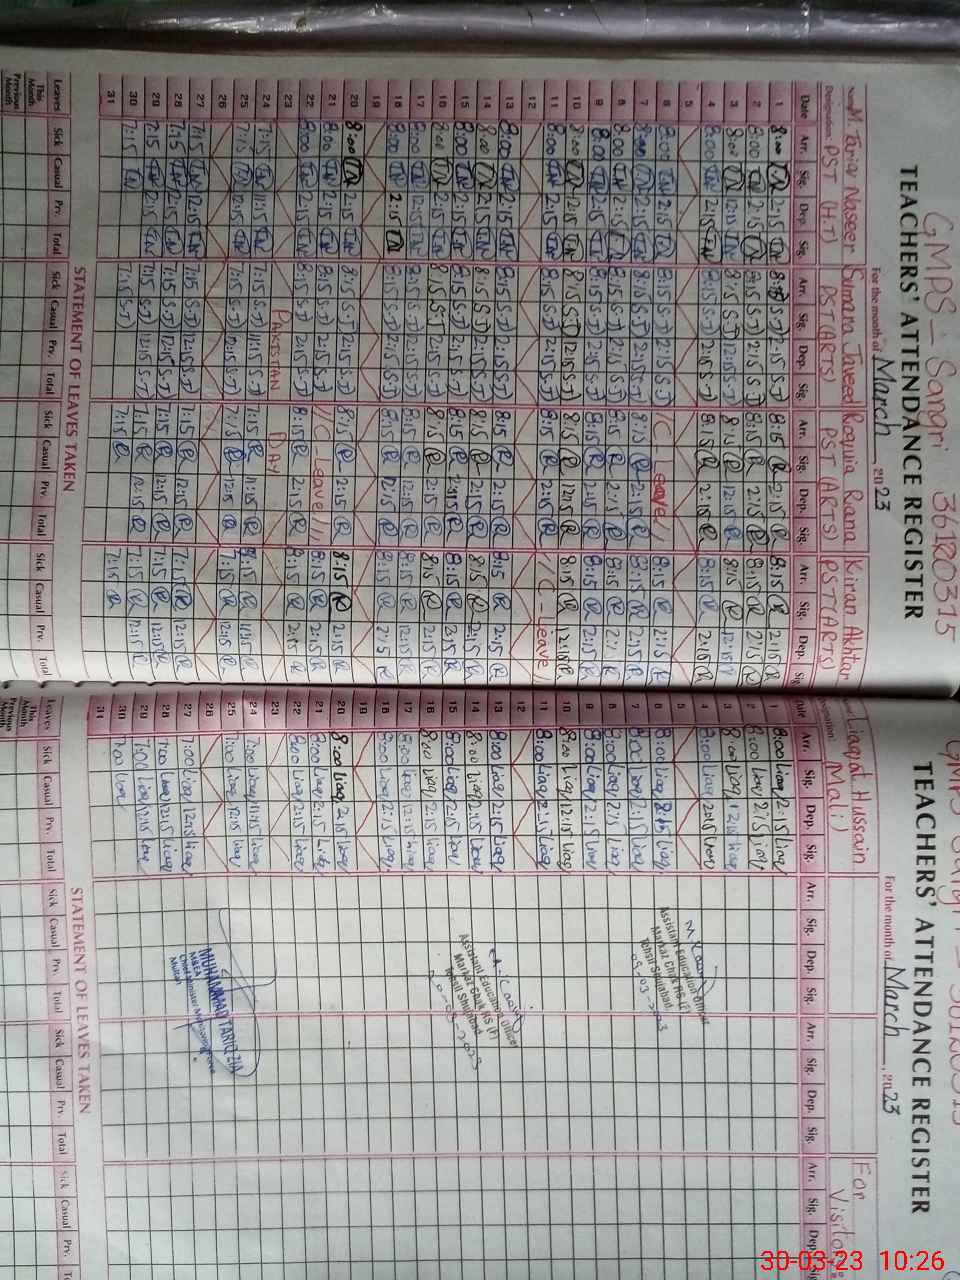 GMPS - Sangri 36120315
TEACHERS' ATTENDANCE REGISTER
For the month of March, 2023
Name M. Tariq Naseer Sumara Javeed Roquia Rana Kiran Akhtar
Designation PST (H.T) PST (ARTS) PST (ARTS) PST (ARTS)
Date Arr. Sig. Dep. Sig. Arr. Sig. Dep. Sig. Arr. Sig. Dep. Sig. Arr. Sig. Dep. Sig
1 8:00 2:15 8:15 S.J 2:15 S.J 8:15 R 2:15 R 8:15 R 2:15 R
2 8:00 2:15 8:15 S.J 2:15 S.J 8:15 R 2:15 R 8:15 R 2:15 R
3 8:00 12:15 8:15 S.J 12:15 S.J 8:15 R 12:15 R 8:15 R 12:15 R
4 8:00 2:15 8:15 S.J 2:15 S.J 8:15 R 2:15 R 8:15 R 2:15 R
5
6 8:00 2:15 8:15 S.J 2:15 S.J / C - Leave / 8:15 R 2:15 R
7 8:00 2:15 8:15 S.J 2:15 S.J 8:15 R 2:15 R 8:15 R 2:15 R
8 8:00 2:15 8:15 S.J 2:15 S.J 8:15 R 2:15 R 8:15 R 2:15 R
9 8:00 2:15 8:15 S.J 2:15 S.J 8:15 R 2:15 R 8:15 R 2:15 R
10 8:00 12:15 8:15 S.J 12:15 S.J 8:15 R 12:15 R 8:15 R 12:15 R
11 8:00 2:15 8:15 S.J 2:15 S.J 8:15 R 2:15 R / C - Leave /
12
13 8:00 2:15 8:15 S.J 2:15 S.J 8:15 R 2:15 R 8:15 R 2:15 R
14 8:00 2:15 8:15 S.J 2:15 S.J 8:15 R 2:15 R 8:15 R 2:15 R
15 8:00 2:15 8:15 S.J 2:15 S.J 8:15 R 2:15 R 8:15 R 2:15 R
16 8:00 2:15 8:15 S.J 2:15 S.J 8:15 R 2:15 R 8:15 R 2:15 R
17 8:00 12:15 8:15 S.J 12:15 S.J 8:15 R 12:15 R 8:15 R 12:15 R
18 8:00 2:15 8:15 S.J 2:15 S.J 8:15 R 8:15 R 2:15 R
19
20 8:00 2:15 8:15 S.J 2:15 S.J 8:15 R 2:15 R 8:15 R 2:15 R
21 8:00 2:15 8:15 S.J 2:15 S.J / C - Leave / 8:15 R 2:15 R
22 8:00 2:15 8:15 S.J 2:15 S.J 8:15 R 2:15 R 8:15 R 2:15 R
23 PAKISTAN DAY
24 7:15 11:15 7:15 S.J 11:15 S.J 7:15 R 11:15 R 7:15 R 11:15 R
25 7:15 12:15 7:15 S.J 12:15 S.J 7:15 R 12:15 R 7:15 R 12:15 R
26
27 7:15 12:15 7:15 S.J 12:15 S.J 7:15 R 12:15 R 7:15 R 12:15 R
28 7:15 12:15 7:15 S.J 12:15 S.J 7:15 R 12:15 R 7:15 R 12:15 R
29 7:15 12:15 7:15 S.J 12:15 S.J 7:15 R 12:15 R 7:15 R 12:15 R
30 7:15 7:15 S.J 7:15 R 7:15 R
31
STATEMENT OF LEAVES TAKEN
Leaves Sick Casual Prv. Total Sick Casual Prv. Total Sick Casual Prv. Total Sick Casual Prv. Total
This Month
Previous Month
TEACHERS' ATTENDANCE REGISTER
For the month of March, 2023
Liaqat Hussain For
(Mali) Visitors
Date Arr. Sig. Dep. Sig. Arr. Sig. Dep. Sig. Arr. Sig. Dep. Sig. Arr. Sig. Dep. Sig
1 8:00 Liaq 2:15 Liaq
2 8:00 Liaq 2:15 Liaq
3 8:00 Liaq 12:15 Liaq
4 8:00 Liaq 2:15 Liaq
5
6 8:00 Liaq 2:15 Liaq
7 8:00 Liaq 2:15 Liaq
8 8:00 Liaq 2:15 Liaq
9 8:00 Liaq 2:15 Liaq
10 8:00 Liaq 12:15 Liaq
11 8:00 Liaq 2:15 Liaq
12
13 8:00 Liaq 2:15 Liaq
14 8:00 Liaq 2:15 Liaq
15 8:00 Liaq 2:15 Liaq
16 8:00 Liaq 2:15 Liaq
17 8:00 Liaq 12:15 Liaq
18 8:00 Liaq 2:15 Liaq
19
20 8:00 Liaq 2:15 Liaq
21 8:00 Liaq 2:15 Liaq
22 8:00 Liaq 2:15 Liaq
23
24 7:00 Liaq 11:15 Liaq
25 7:00 Liaq 12:15 Liaq
26
27 7:00 Liaq 12:15 Liaq
28 7:00 Liaq 12:15 Liaq
29 7:00 Liaq 12:15 Liaq
30 7:00 Liaq
31
Assistant Education Officer
Markaz Chak RS (P)
Tehsil Shujabad
-03-2023
Assistant Education Officer
Markaz Chak RS (P)
Tehsil Shujabad
-03-2023
MUHAMMAD TARIQ ZIA
M&EA
Chief Minister Monitoring Force
Multan
STATEMENT OF LEAVES TAKEN
Leaves Sick Casual Prv. Total Sick Casual Prv. Total Sick Casual Prv. Total Sick Casual Prv. T
This Month
Previous Month
30-03-23 10:26